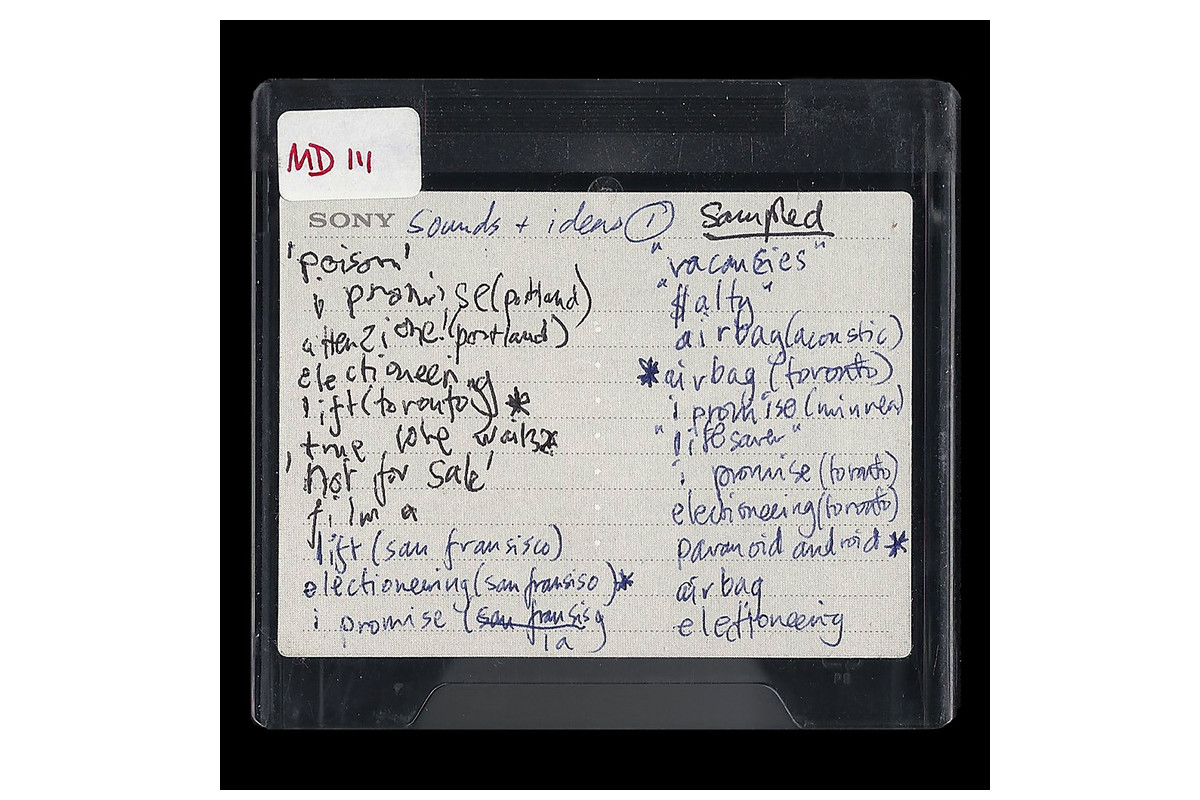 MD 111
SONY sounds + ideas 1 sampled
'poison'
i promise (portland)
attenzione! (portland)
electioneering
lift (toronto) *
true love waits *
'not for sale'
film a
lift (san fransisco)
electioneering (san fransiso) *
i promise (san fransis
la)
"vacancies"
"flalty"
airbag (acoustic)
*airbag (toronto)
i promise (minnea)
"lifesaver"
i promise (toronto)
electioneering (toronto)
paranoid android *
airbag
electioneering